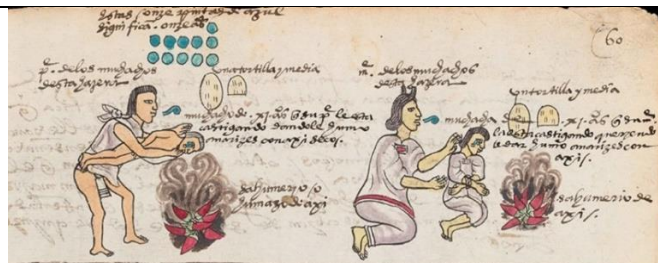 60
onze
onze años
pe. de los muchachos
desta hazera
una tortilla y media
muchacho de . xi. años q su pe le esta
castigando dandole humo
a narizes con axi secos.
sahumerio o
humazo de axi
me. de los muchachos
desta hazera
una tortilla y media
muchacha
. xi. años q su
la esta castigando
dar humo a narizes con
axi.
sahumerio de
axi.